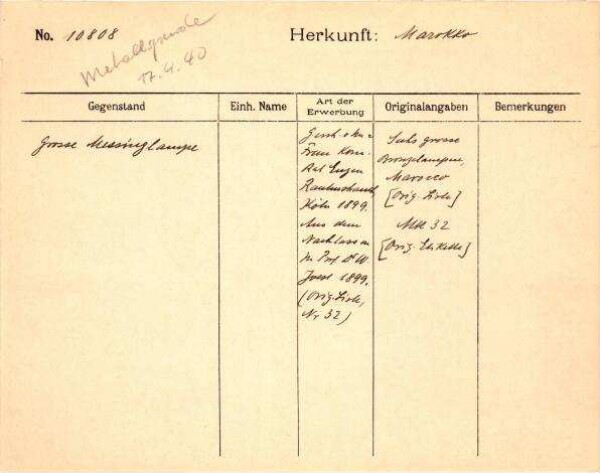 No. 10808
Herkunft: Marokko
Metallspende
17.4.40
Gegenstand
Einh. Name
Art der
Erwerbung
Originalangaben
Bemerkungen
Grosse Messinglampe
Gesch. d.
Frau Kom.
Rat Eugen
Rautenstrauch
Köln 1899.
Aus dem
Nachlass
Prof. Dr W.
Joest 1899.
(Orig. Liste,
Nr 32)
Sechs grosse
Bronzelampen,
Marocco
[Orig. Liste]
32
[Orig. Etikette]